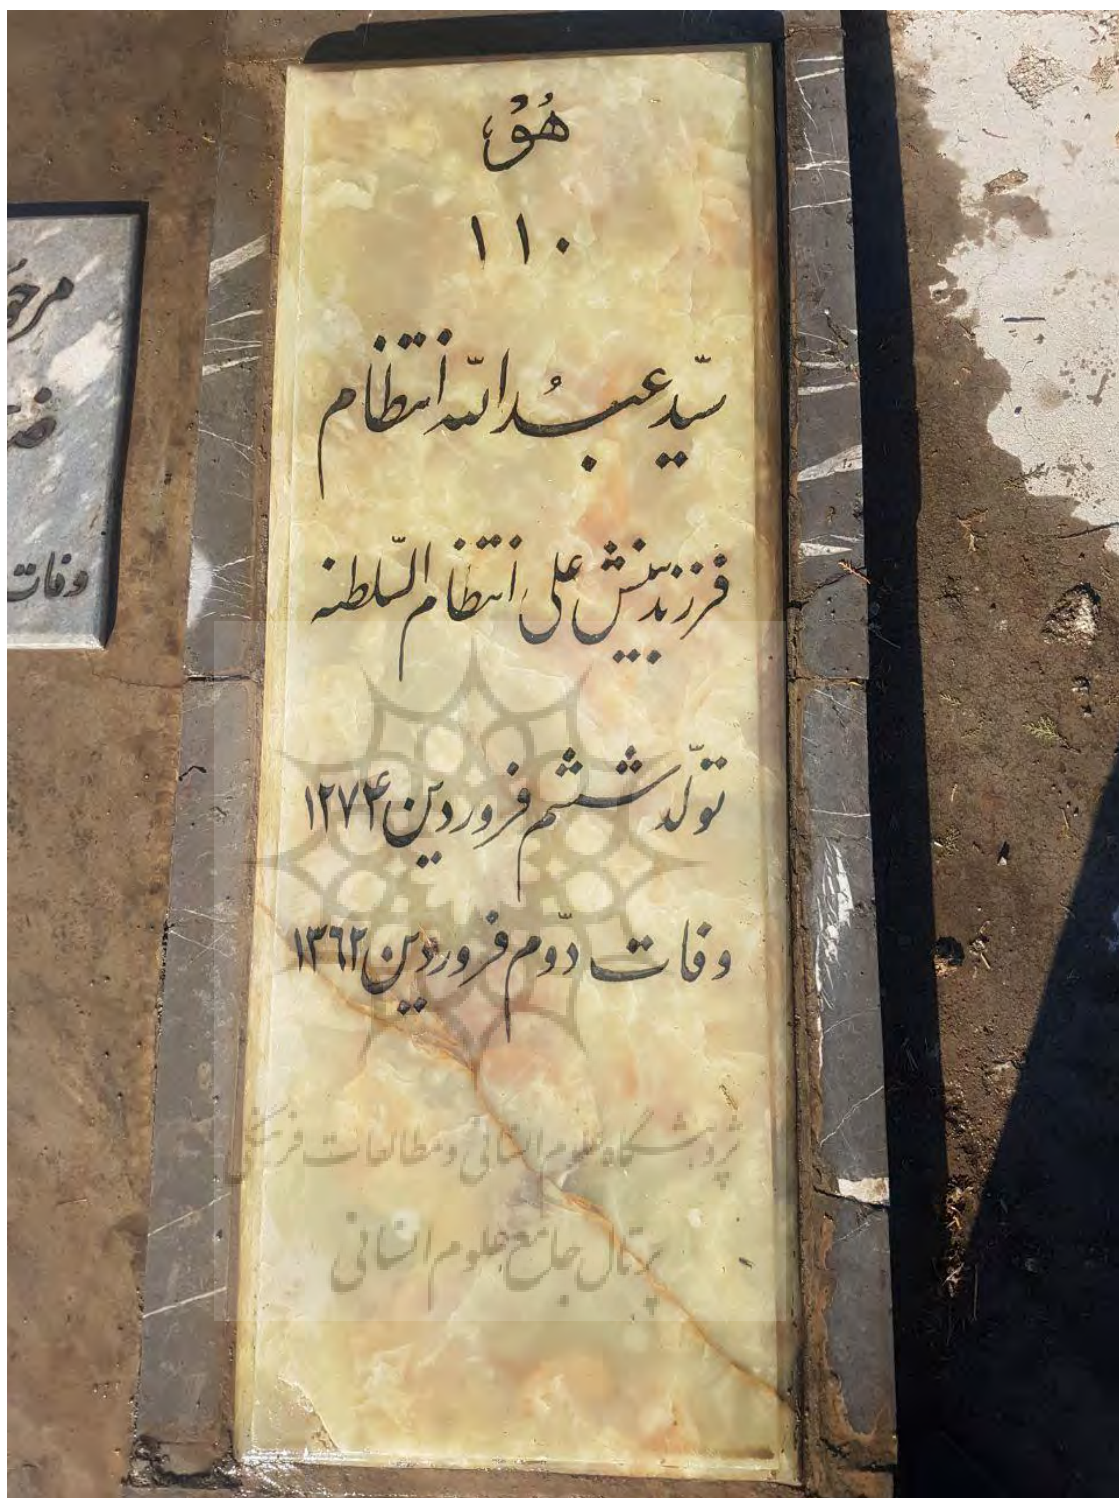 هُوْ
۱۱۰
سیّد عبدُ اللّه انتظام
فرزند بینش علی انتظام السّلطنه
تولّد ششم فروردین ۱۲۷۴
وفات دوّم فروردین ۱۳۶۲
وفات
پژوهشگاه علوم انسانی و مطالعات فرهنگی
پرتال جامع علوم انسانی